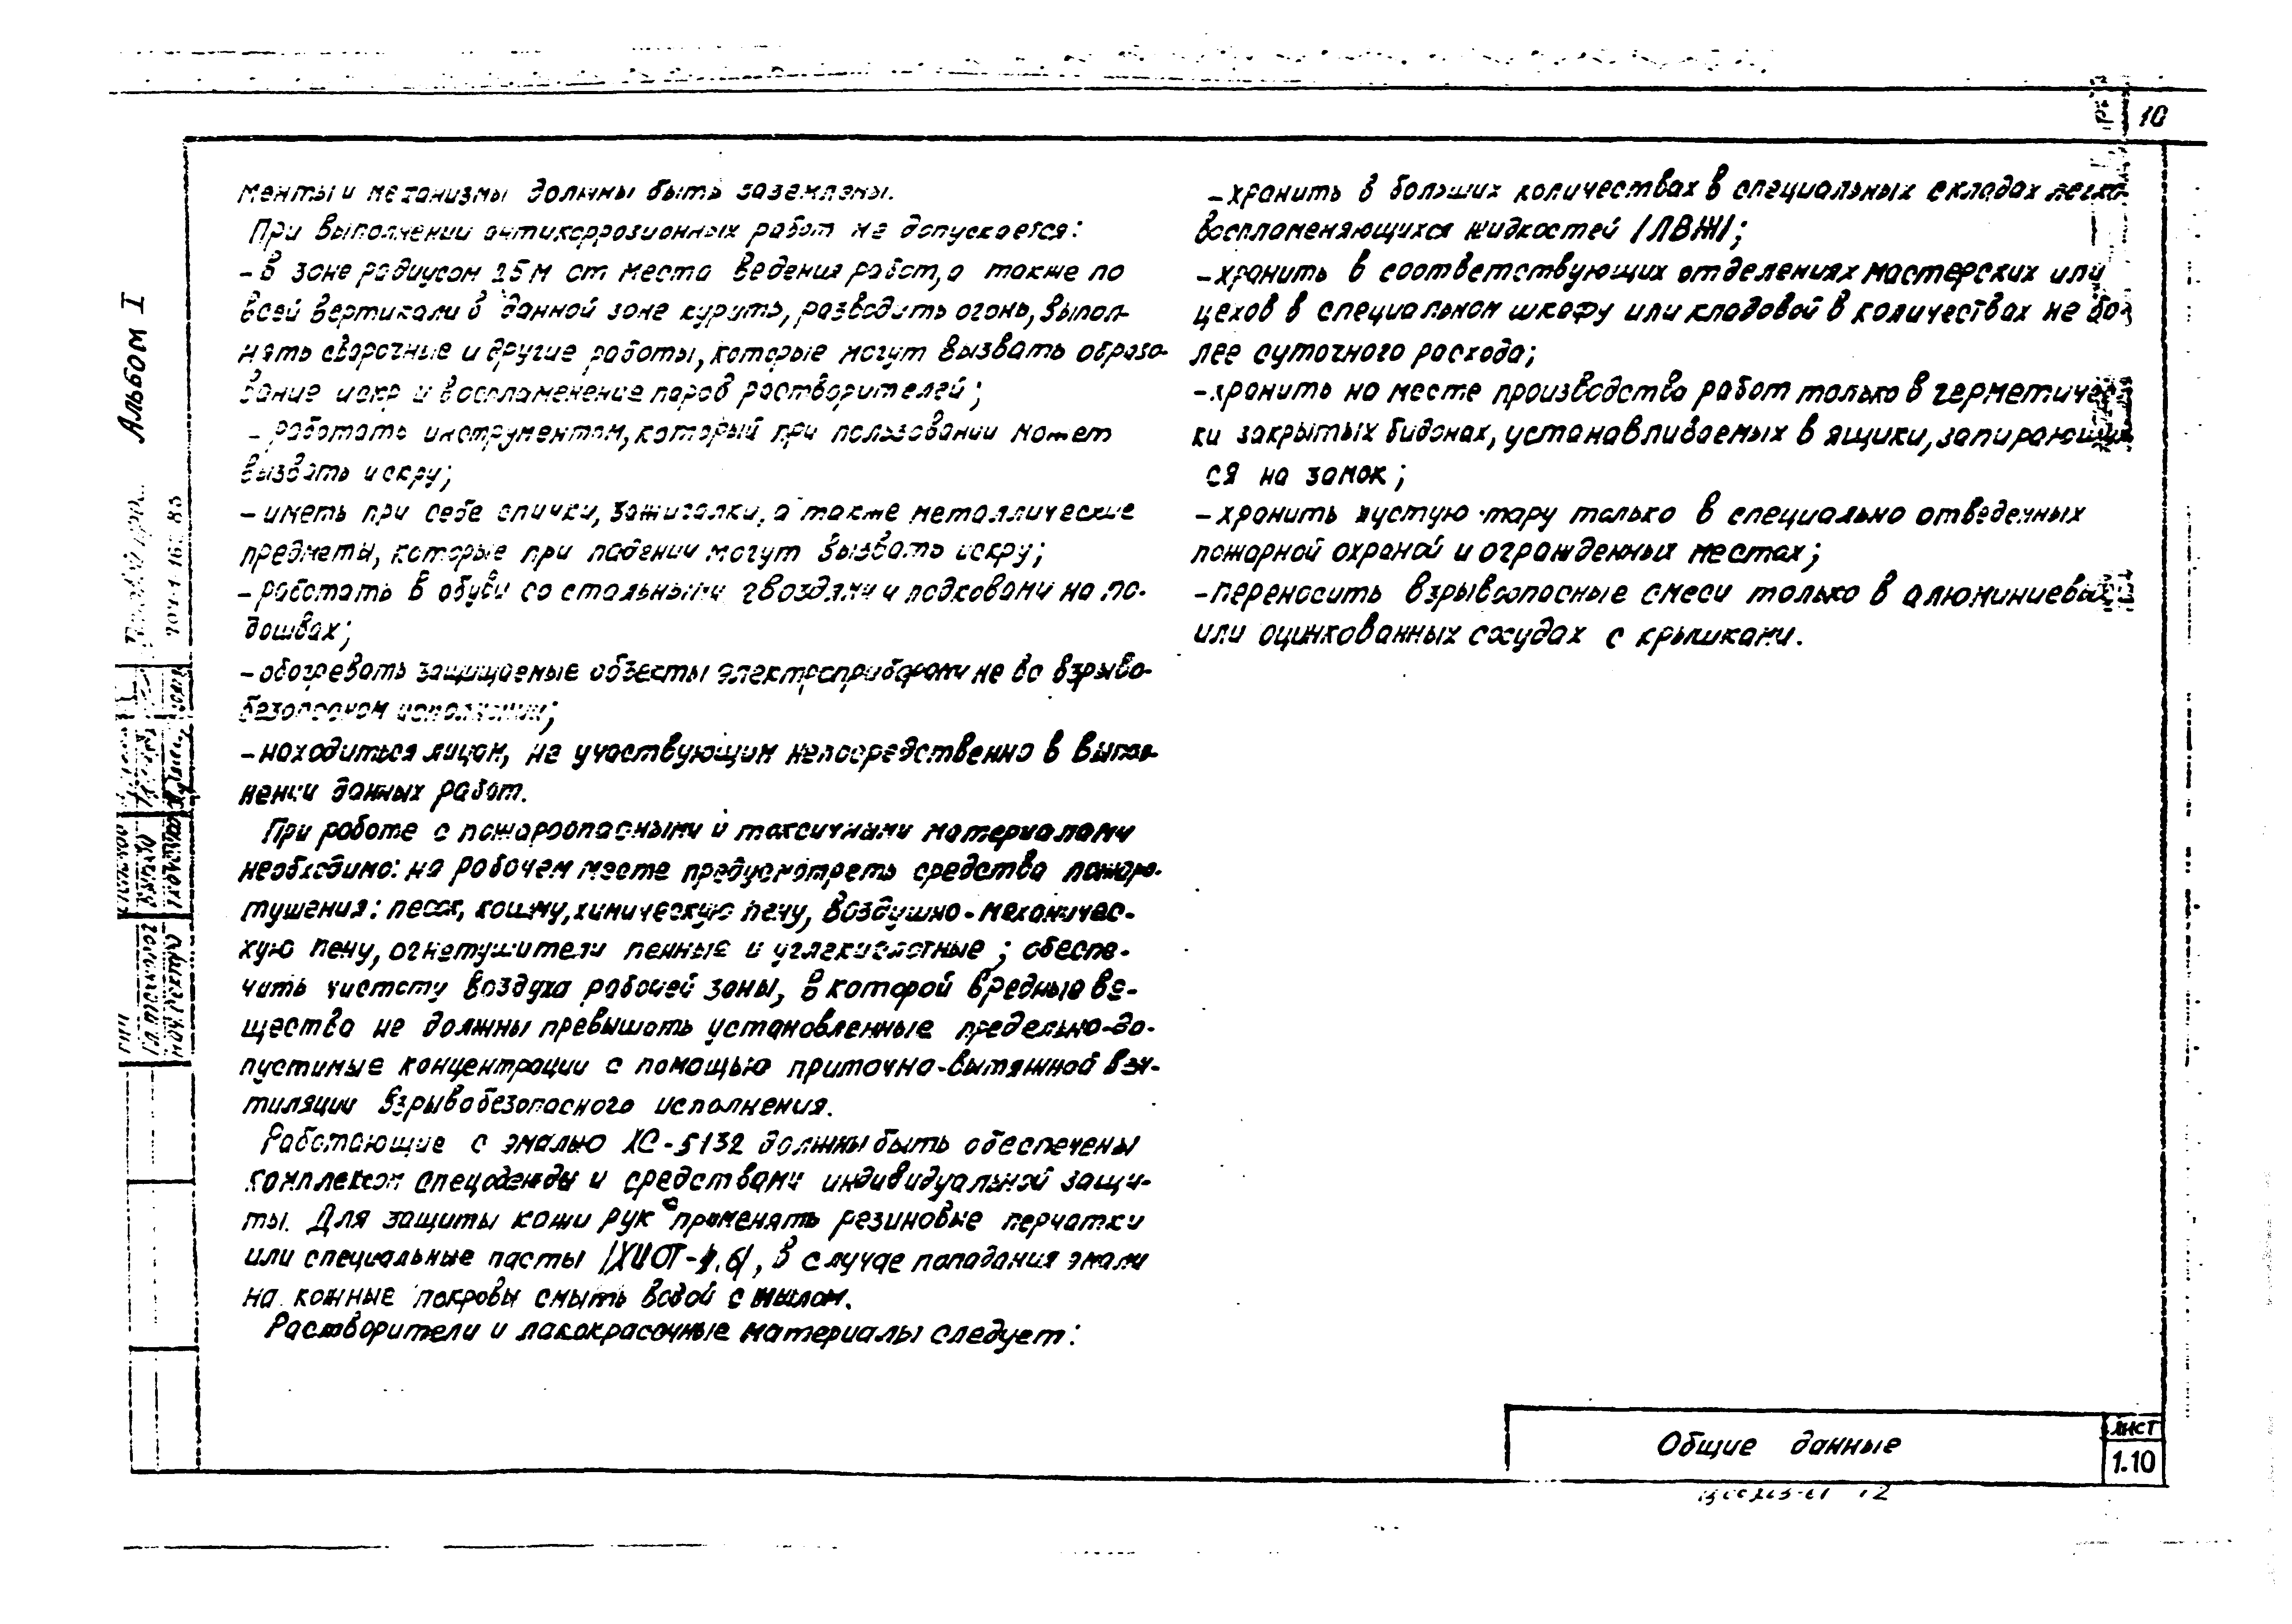 10
Альбом I
менты и механизмы должны быть заземлены.
При выполнении антикоррозионных работ не допускается:
- в зоне радиусом 25 м от места ведения работ, а также по
всей вертикали в данной зоне курить, разводить огонь, выпол-
нять сварочные и другие работы, которые могут вызвать образо-
вание искр и воспламенение паров растворителей;
- работать инструментом, который при пользовании может
вызвать искру;
- иметь при себе спички, зажигалки, а также металлические
предметы, которые при падении могут вызвать искру;
- работать в обуви со стальными гвоздями и подковами на по-
дошвах;
- обогревать защищаемые объекты электроприборами не во взрыво-
безопасном исполнении;
- находиться лицам, не участвующим непосредственно в выпол-
нении данных работ.
При работе с пожароопасными и токсичными материалами
необходимо: на рабочем месте предусмотреть средства пожаро-
тушения: песок, кошму, химическую пену, воздушно-механичес-
кую пену, огнетушители пенные и углекислотные; обеспе-
чить чистоту воздуха рабочей зоны, в которой вредные ве-
щества не должны превышать установленные предельно-до-
пустимые концентрации с помощью приточно-вытяжной вен-
тиляции взрывобезопасного исполнения.
Работающие с эмалью ХС-5132 должны быть обеспечены
комплексом спецодежды и средствами индивидуальной защи-
ты. Для защиты кожи рук применять резиновые перчатки
или специальные пасты /ХИОТ-6/, в случае попадания эмали
на кожные покровы смыть водой с мылом.
Растворители и лакокрасочные материалы следует:
- хранить в больших количествах в специальных складах легко-
воспламеняющихся жидкостей /ЛВЖ/;
- хранить в соответствующих отделениях мастерских или
цехов в специальном шкафу или кладовой в количествах не бо-
лее суточного расхода;
- хранить на месте производства работ только в герметичес-
ки закрытых бидонах, устанавливаемых в ящики, запирающие-
ся на замок;
- хранить пустую тару только в специально отведенных
пожарной охраной и огражденных местах;
- переносить взрывоопасные смеси только в алюминиевых
или оцинкованных сосудах с крышками.
Общие данные
лист
1.10